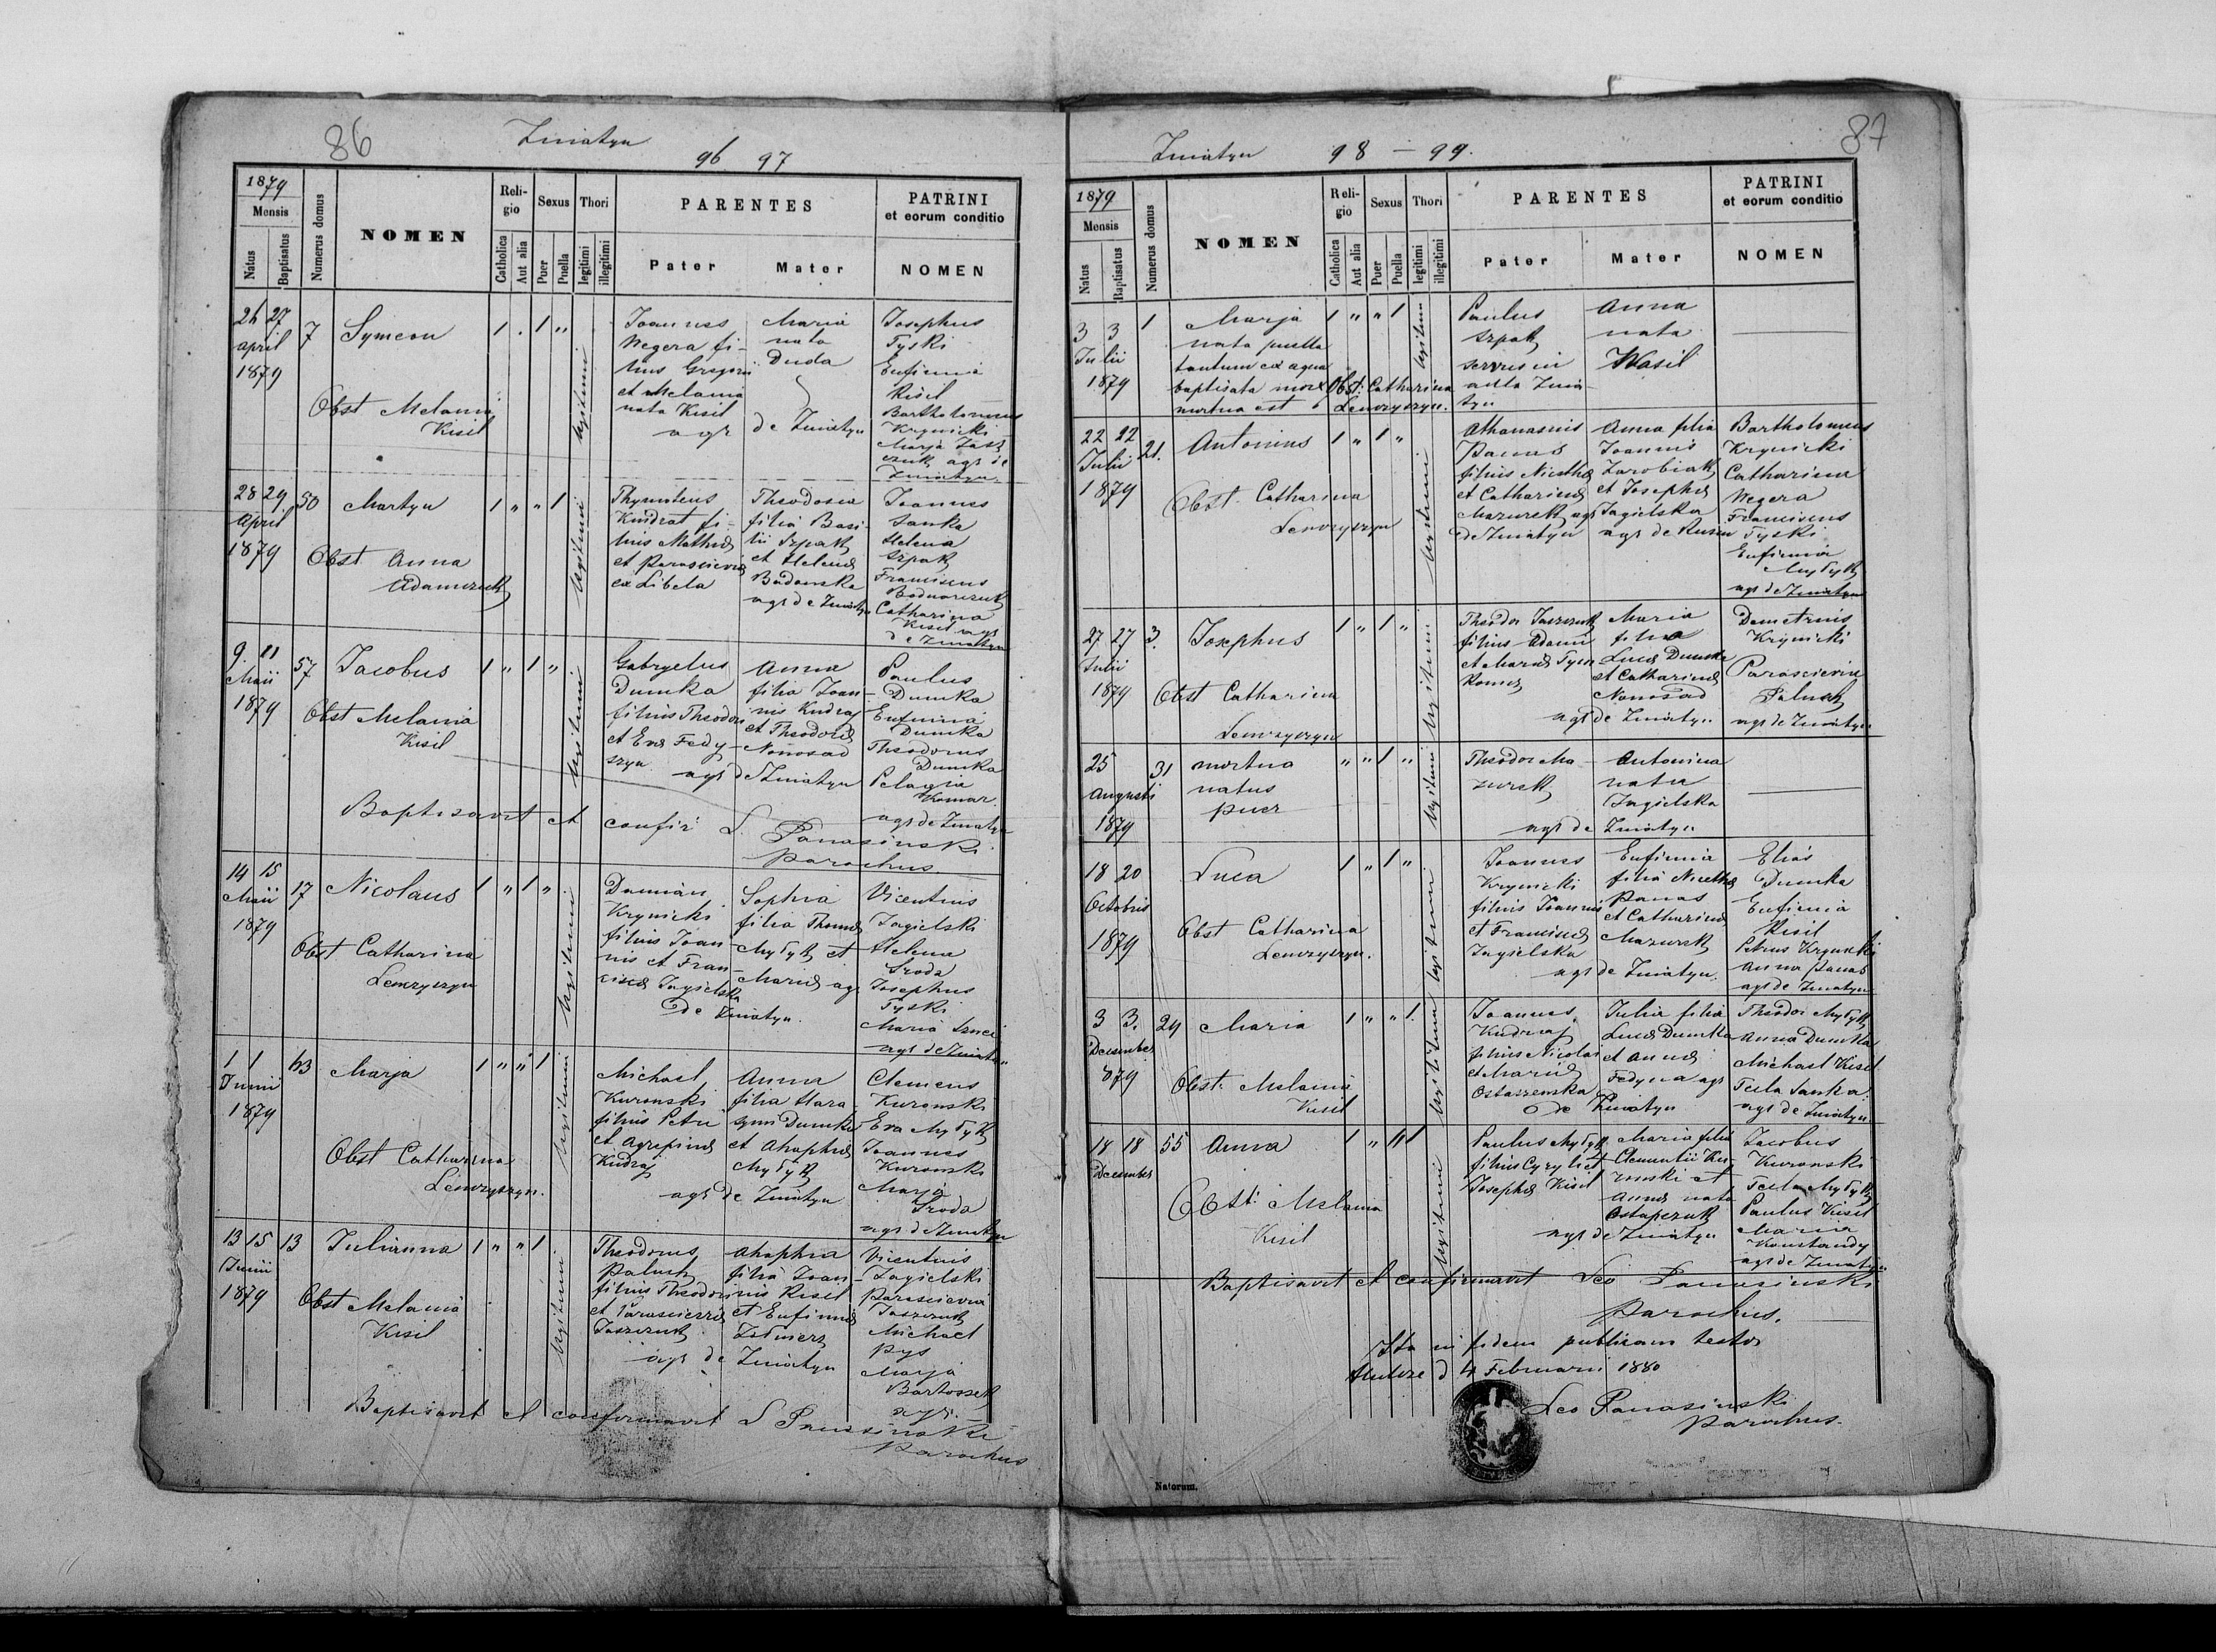 86
Zmiatyn
96 97
1879
Mensis
Natus
Baptisatus
Numerus domus
NOMEN
Religio
Catholica
Aut alia
Sexus
Puer
Puella
Thori
legitimi
illegitimi
PARENTES
Pater
Mater
PATRINI
et eorum conditio
NOMEN
26 27
April
1879
7
Symeon
Obst Melania
Kisil
1 . 1 "
legitimi
Joannes
Wegera fi-
lius Gregorii
et Melania
nata Kisil
agr
Maria
nata
Duda
de Zmiatyn
Josephus
Tyski
Eufimia
Kisil
Bartholomeus
Krynicki
Marja Jasz
czuk agr de
Zmiatyn
28 29
April
1879
50
Martyn
Obst Anna
Adamczuk
1 " " 1
legitimi
Thymoteus
Kindrat fi-
lius Mathei
et Parascieviæ
ex Libela
Theodosia
filia Basi-
lii Szpak
et Helenæ
Badanska
agr de Zmiatyn
Joannes
Sanka
Helena
Szpak
Franciscus
Bodnarczuk
Catharina
Kisil agr
de Zmiatyn
9. 11
Maii
1879
57
Jacobus
Obst Melania
Kisil
1 " 1 "
legitimi
Gabryelus
Dumka
filius Theodori
et Evæ Fedy-
szyn
Anna
filia Joan-
nis Kudraj
et Theodoræ
Nonosad
agr de Zmiatyn
Paulus
Dumka
Eufimia
Dumka
Theodorus
Dumka
Pelagia
Komar.
agr de Zmiatyn
Baptisavit et confir L. Panasinski
Parochus.
14 15
Maii
1879
17
Nicolaus
Obst Catharina
Lewczyszyn
1 " 1 "
legitimi
Damian
Krynicki
filius Joan-
nis et Fran-
ciscæ Jagielska
de Zmiatyn.
Sophia
filia Thomæ
Mytyk et
Mariæ agr
Vicentius
Jagielski
Helena
Sroda
Josephus
Tyski
Maria
agr de Zmiatyn
1 1
Junii
1879
63
Marja
Obst Catharina
Lewczyszyn.
1 " " 1
legitimi
Michael
Kuronski
filius Petri
et Agrepinæ
Kudraj
Anna
filia Hara
sym Dumka
et Ahaphiæ
Mytyk
agr de Zmiatyn
Clemens
Kuronski
Eva Mytyk
Joannes
Kuronski
Marja
Sroda
agr de Zmiatyn
13 15
Junii
1879
13
Julianna
Obst Melania
Kisil
1 " " 1
legitimi
Theodorus
Paluch
filius Theodori
et Parascieviæ
Jaszczuk
Ahaphia
filia Joan-
nis Kisil
et Eufimiæ
agr de Zmiatyn
Vicentius
Jagielski
Parascievia
Jaszczuk
Michael
Pys
Marja
Bartoszek
agr.
Baptisavit et confirmavit L Panasinski
Parochus
87
Zmiatyn
98 - 99.
1879
Mensis
Natus
Baptisatus
Numerus domus
NOMEN
Religio
Catholica
Aut alia
Sexus
Puer
Puella
Thori
legitimi
illegitimi
PARENTES
Pater
Mater
PATRINI
et eorum conditio
NOMEN
3 3
Julii
1879
1
Marja
nata puella
tantum ex aqua
baptisata mox
mortua est
Obst: Catharina
Lewczyszyn.
1 " " 1
legitimi
Paulus
Szpak
serviens in
aula Zmia-
tyn
Anna
nata
Wasil
22 22
Julii
1879
21.
Antonius
Obst. Catharina
Lewczyszyn
1 " 1 "
legitimi
Athanasius
Panas
filius Nicethæ
et Catharinæ
Mazurek agr
de Zmiatyn
Anna filia
Joannis
Zarobiak
et Josephæ
Jagielska
agr de Rusin
Bartholomeus
Krynicki
Catharina
Wegera
Franciscus
Tyski
Eufimia
Mytyk
agr de Zmiatyn
27 27
Julii
1879
3.
Josephus
Obst Catharina
Lewczyszyn
1 " 1 "
legitimi
Theodor Jaszczuk
filius Adami
et Mariæ
Maria
filia
Lucæ Dumka
et Catharinæ
Nonosad
agr de Zmiatyn
Demetrius
Krynicki
Parascievia
Paluch
agr de Zmiatyn
25
Augusti
1879
31
mortua
natus
puer
" " 1 "
legitimi
Theodor Ma-
zurek
Antonina
nata
Jagielska
agr de Zmiatyn
18 20
Octobris
1879
Luca
Obst Catharina
Lewczyszyn.
1 " 1 "
legitimi
Joannes
Krynicki
filius Joannis
et Franciscæ
Jagielska
Eufimia
filia Nicethæ
Panas
et Catharinæ
Mazurek
agr de Zmiatyn.
Elias
Dumka
Eufimia
Kisil
Petrus Krynicki
Anna Panas
agr de Zmiatyn
3 3.
December
879
24
Maria
Obst: Melania
Kisil
1 " " 1.
legitimi
Joannes
Kudraj
filius Nicolai
et Mariæ
Ostaszewska
Julia filia
Lucæ Dumka
et Annæ
Fedyna agr
de Zmiatyn
Theodor Mytyk
Anna Dumka
Michael Kisil
Tecla Sanka
agr de Zmiatyn
18 18
December
55
Anna
Obst: Melania
Kisil
1 " " 1
legitimi
Paulus Mytyk
filius Cyryli et
Josephæ Kisil
Maria filia
Clementii Ku-
ronski et
Annæ nata
Ostapczuk
agr de Zmiatyn
Jacobus
Kuronski
Tecla Mytyk
Paulus Kisil
Maria
Konstandy
agr de Zmiatyn
Baptisavit et confirmavit Leo Panasinski
Parochus.
Ita in fidem publicam testor
d 4 Februarii 1880
Leo Panasinski
Parochus.
Natorum.